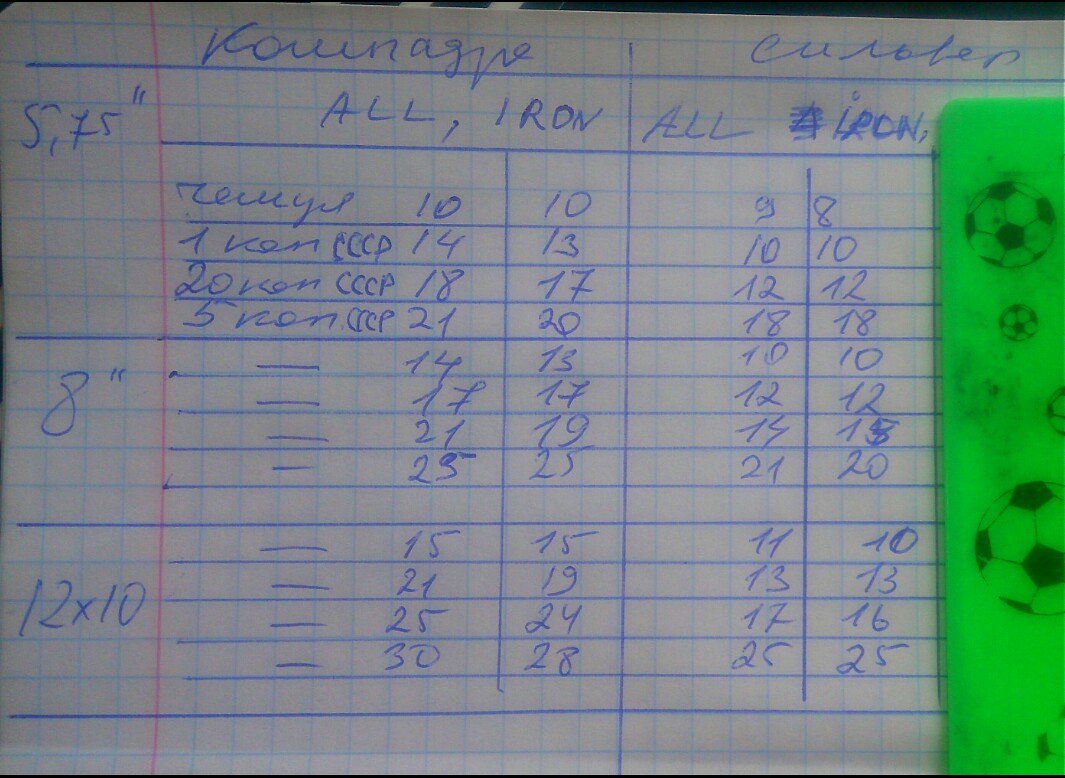 Компадре сильвер
5,75" ALL, IRON ALL IRON,
чешуя 10 10 9 8
1 коп СССР 14 13 10 10
20 коп СССР 18 17 12 12
5 коп СССР 21 20 18 18
8" — 14 13 10 10
— 17 17 12 12
— 21 19 14
— 25 25 21 20
12x10 — 15 15 11 10
— 21 19 13 13
— 25 24 17 16
— 30 28 25 25